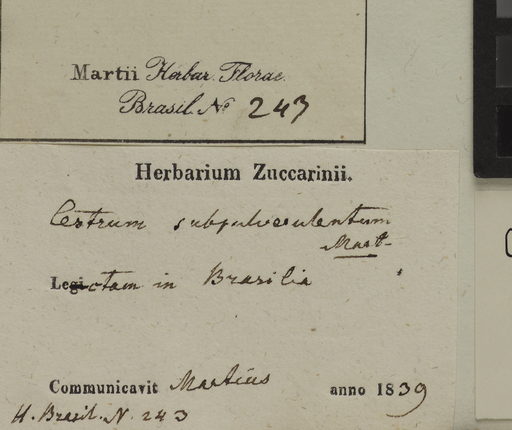 Martii Herbar. Florae
Brasil. No 243
Herbarium Zuccarinii.
Cestrum subpulverulentum
Mart.
Lectam in Brasilia
Communicavit Martius anno 1839
H. Brasil. N. 243